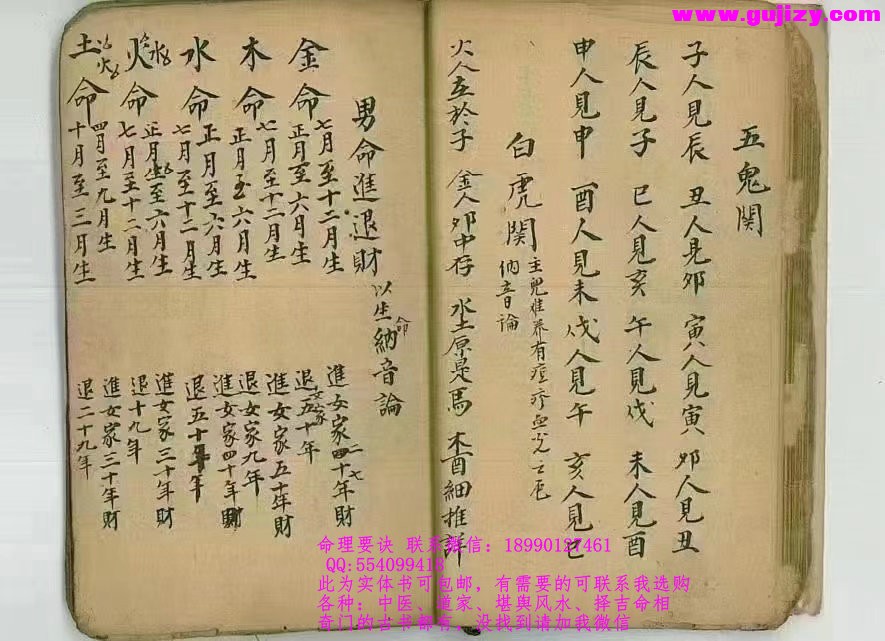 www.gujizy.com
五鬼関
子人見辰 丑人見夘 寅人見寅 夘人見丑
辰人見子 巳人見亥 午人見戌 未人見酉
申人見申 酉人見未 戌人見午 亥人見巳
白虎関 主兒难养有痘疹血光之厄 纳音論
火人在於子 金人夘中存 水土原是馬 木酉細推詳
男命進退財 以生命納音論
金命 七月至十二月生 進女家四十年財 二七
正月至六月生 退女家五十年
木命 七月至十二月生 進女家五十年財
正月至六月生 退女家九年
水命 正月至六月生 進女家四十年財
七月至十二月生 退五十年
火命 正月生至六月生 進女家三十年財
七月至十二月生 退十九年
土命 四月至九月生 進女家三十年財
十月至三月生 退二十九年
命理要诀 联系微信：18990127461
QQ:554099418
此为实体书可包邮，有需要的可联系我选购
各种：中医、道家、堪舆风水、择吉命相
奇门的古书都有，没找到请加我微信